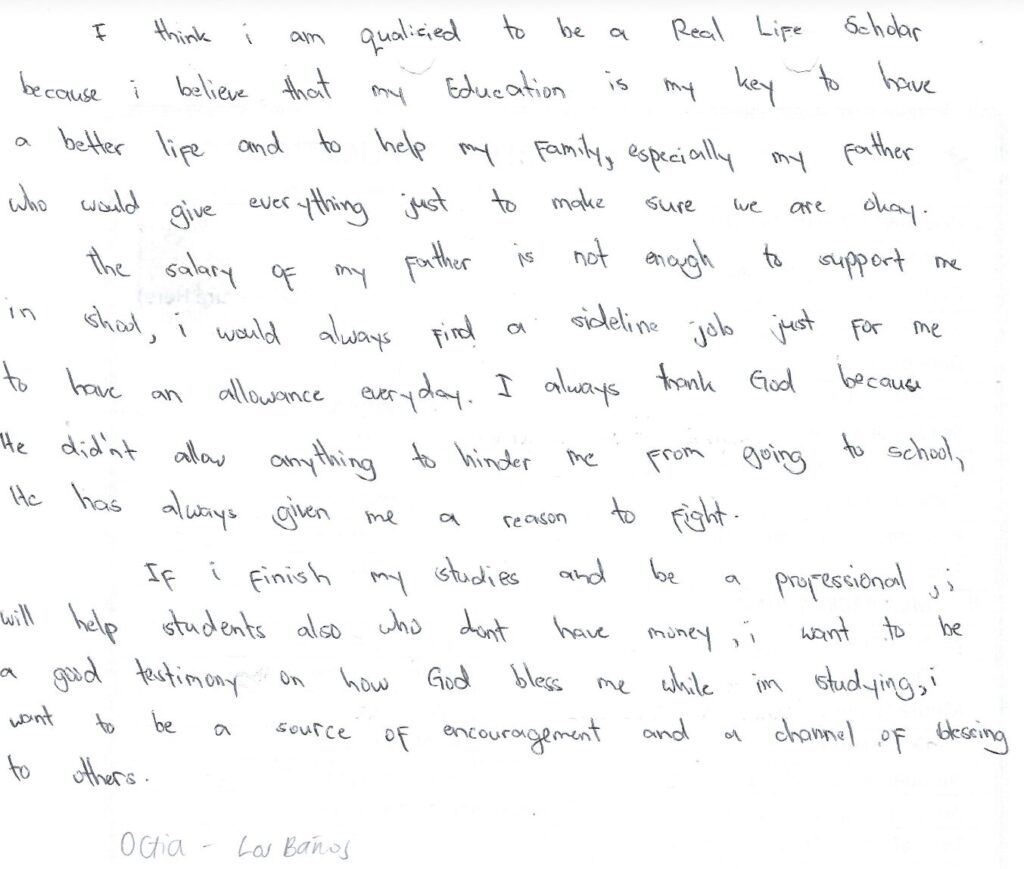 I think i am qualified to be a Real Life Scholar
because i believe that my Education is my key to have
a better life and to help my Family, especially my father
who would give everything just to make sure we are okay.
the salary of my father is not enough to support me
in shool, i would always find a sideline job just for me
to have an allowance everyday. I always thank God because
He did'nt allow anything to hinder me from going to school,
He has always given me a reason to fight.
If i finish my studies and be a professional, i
will help students also who dont have money, i want to be
a good testimony on how God bless me while im studying, i
want to be a source of encouragement and a channel of blessing
to others.
- Los Baños